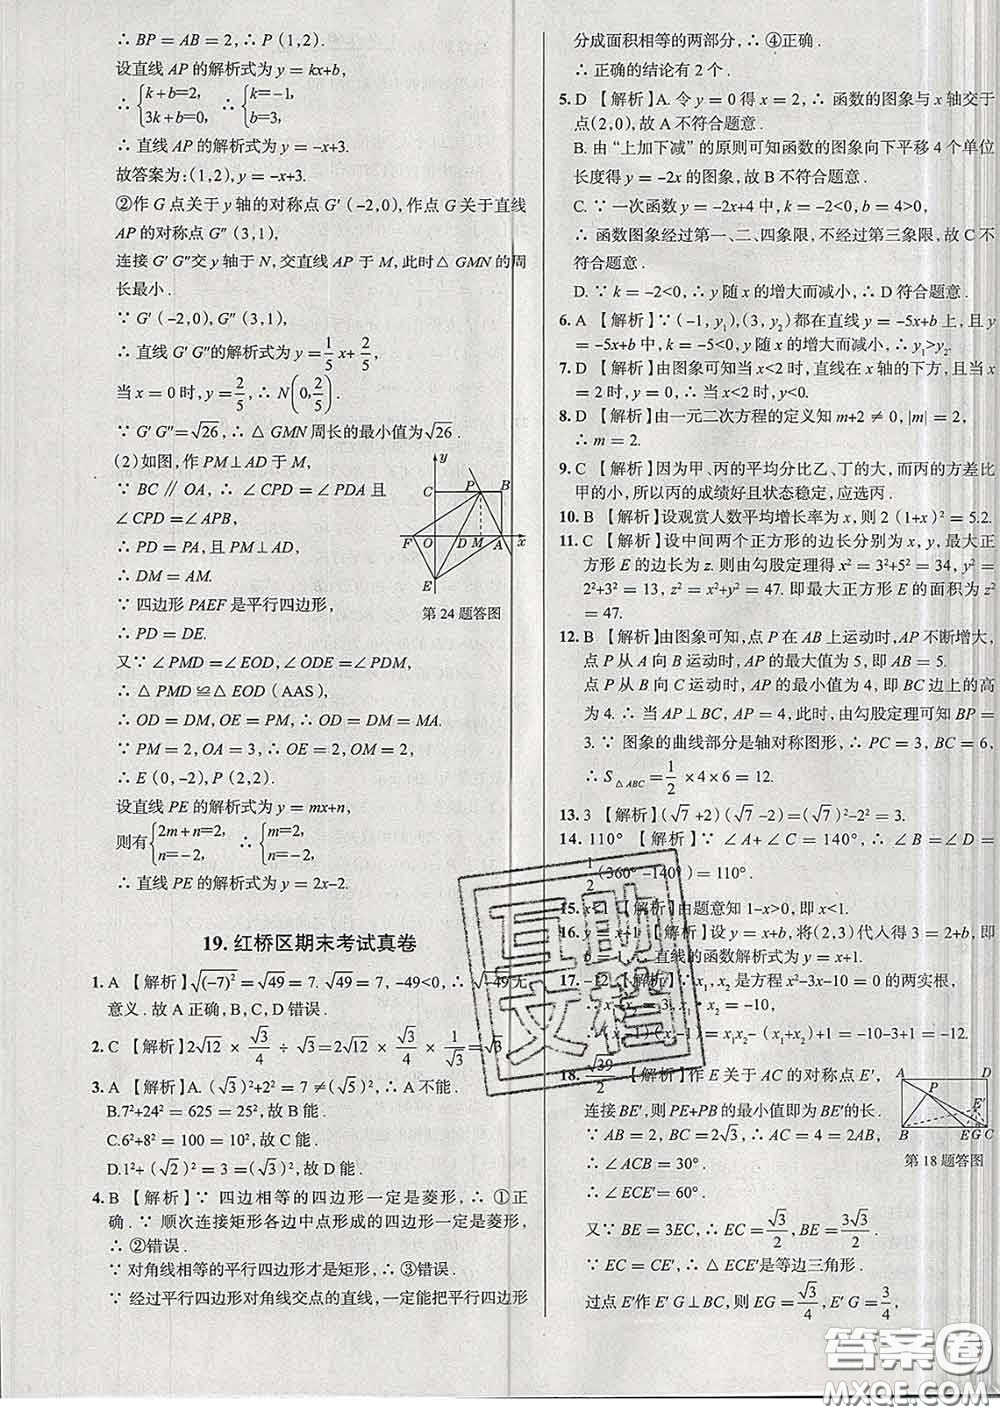 ∴ BP = AB = 2, ∴ P (1,2) .
设直线 AP 的解析式为 y = kx+b,
∴ {k+b=2, 3k+b=0, ∴ {k=-1, b=3,
∴ 直线 AP 的解析式为 y = -x+3.
故答案为:(1,2), y = -x+3.
②作 G 点关于 y 轴的对称点 G′ (-2,0), 作点 G 关于直线
AP 的对称点 G″ (3,1),
连接 G′ G″交 y 轴于 N, 交直线 AP 于 M, 此时 △ GMN 的周
长最小 .
∵ G′ (-2,0), G″ (3,1),
∴ 直线 G′ G″的解析式为 y = 1/5 x + 2/5,
当 x = 0 时, y = 2/5, ∴ N(0, 2/5) .
∵ G′ G″ = √26, ∴ △ GMN 周长的最小值为√26 .
(2)如图, 作 PM⊥AD 于 M,
∵ BC ∥ OA, ∴ ∠CPD = ∠PDA 且
∠CPD = ∠APB,
∴ PD = PA, 且 PM⊥AD,
∴ DM = AM.
∵ 四边形 PAEF 是平行四边形,
∴ PD = DE.
又∵ ∠PMD = ∠EOD, ∠ODE = ∠PDM,
∴ △ PMD ≌△ EOD (AAS),
∴ OD = DM, OE = PM, ∴ OD = DM = MA.
∵ PM = 2, OA = 3, ∴ OE = 2, OM = 2,
∴ E (0,-2), P (2,2) .
设直线 PE 的解析式为 y = mx+n,
则有 {2m+n=2, n=-2, ∴ {m=2, n=-2,
∴ 直线 PE 的解析式为 y = 2x-2.
y
C P B
F O D M A x
E
第 24 题答图
19. 红桥区期末考试真卷
1. A 【解析】√(-7)² = √49 = 7. √49 = 7, -49<0, ∴ √-49 无
意义 . 故 A 正确, B, C, D 错误 .
2. C 【解析】2√12 × √3/4 ÷ √3 = 2√12 × √3/4 × 1/√3 = √3
3. A 【解析】A. (√3 )²+2² = 7 ≠(√5 )², ∴ A 不能 .
B.7²+24² = 625 = 25², 故 B 能 .
C.6²+8² = 100 = 10², 故 C 能 .
D.1²+ (√2 )² = 3 = (√3 )², 故 D 能 .
4. B 【解析】∵ 四边相等的四边形一定是菱形, ∴ ①正
确 . ∵ 顺次连接矩形各边中点形成的四边形一定是菱形,
∴ ②错误 .
∵ 对角线相等的平行四边形才是矩形, ∴ ③错误 .
∵ 经过平行四边形对角线交点的直线, 一定能把平行四边形
分成面积相等的两部分, ∴ ④正确 .
∴ 正确的结论有 2 个 .
5. D 【解析】A. 令 y = 0 得 x = 2, ∴ 函数的图象与 x 轴交于
点(2,0), 故 A 不符合题意 .
B. 由 “上加下减” 的原则可知函数的图象向下平移 4 个单位
长度得 y = -2x 的图象, 故 B 不符合题意 .
C. ∵ 一次函数 y = -2x+4 中, k = -2<0, b = 4>0,
∴ 函数图象经过第一、二、四象限, 不经过第三象限, 故 C 不
符合题意 .
D. ∵ k = -2<0, ∴ y 随 x 的增大而减小, ∴ D 符合题意 .
6. A 【解析】∵ (-1, y₁),(3, y₂) 都在直线 y = -5x+b 上, 且 y
= -5x+b 中, k = -5<0, y 随 x 的增大而减小, ∴ y₁>y₂.
7. D 【解析】由图象可知当 x<2 时, 直线在 x 轴的下方, 且当 x
= 2 时, y = 0, ∴ 当 x<2 时, y<0.
8. D 【解析】由一元二次方程的定义知 m+2 ≠ 0, |m| = 2,
∴ m = 2.
9. C 【解析】因为甲、丙的平均分比乙、丁的大, 而丙的方差比
甲的小, 所以丙的成绩好且状态稳定, 应选丙 .
10. B 【解析】设观赏人数平均增长率为 x, 则 2 (1+x)² = 5.2.
11. C 【解析】设中间两个正方形的边长分别为 x, y, 最大正
方形 E 的边长为 z. 则由勾股定理得 x² = 3²+5² = 34, y² =
2²+3² = 13, z² = x²+y² = 47, 即最大正方形 E 的面积为 z²
= 47.
12. B 【解析】由图象可知, 点 P 在 AB 上运动时, AP 不断增大,
点 P 从 A 向 B 运动时, AP 的最大值为 5, 即 AB = 5.
点 P 从 B 向 C 运动时, AP 的最小值为 4, 即 BC 边上的高
为 4. ∴ 当 AP⊥BC, AP = 4, 此时, 由勾股定理可知 BP =
3. ∵ 图象的曲线部分是轴对称图形, ∴ PC = 3, BC = 6,
∴ S△ABC = 1/2 × 4 × 6 = 12.
13. 3 【解析】(√7 +2)(√7 -2) = (√7 )²-2² = 3.
14. 110° 【解析】∵ ∠A+ ∠C = 140°, ∴ ∠B = ∠D =
1/2 (360° -140°) = 110°.
15. x<1 【解析】由题意知 1-x>0, 即 x<1.
16. y = x+1 【解析】设 y = x+b, 将(2,3)代人得 3 = 2+b,
直线的函数解析式为 y = x+1.
17. -12 【解析】∵ x₁, x₂ 是方程 x²-3x-10 = 0 的两实根,
∴ x₁+x₂ = 3, x₁ · x₂ = -10,
∴ (x₁-1)(x₂-1) = x₁x₂- (x₁+x₂)+1 = -10-3+1 = -12.
18. √39/2 【解析】作 E 关于 AC 的对称点 E′,
连接 BE′, 则 PE+PB 的最小值即为 BE′的长.
∵ AB = 2, BC = 2√3, ∴ AC = 4 = 2AB,
∴ ∠ACB = 30° .
∴ ∠ECE′ = 60° .
又∵ BE = 3EC, ∴ EC = √3/2, BE = 3√3/2 .
∵ EC = CE′, ∴ △ ECE′是等边三角形 .
过点 E′作 E′ G⊥BC, 则 EG = √3/4, E′G = 3/4,
A D
P
E′
B E G C
第 18 题答图
互助
文档
答案卷
MXQE.COM